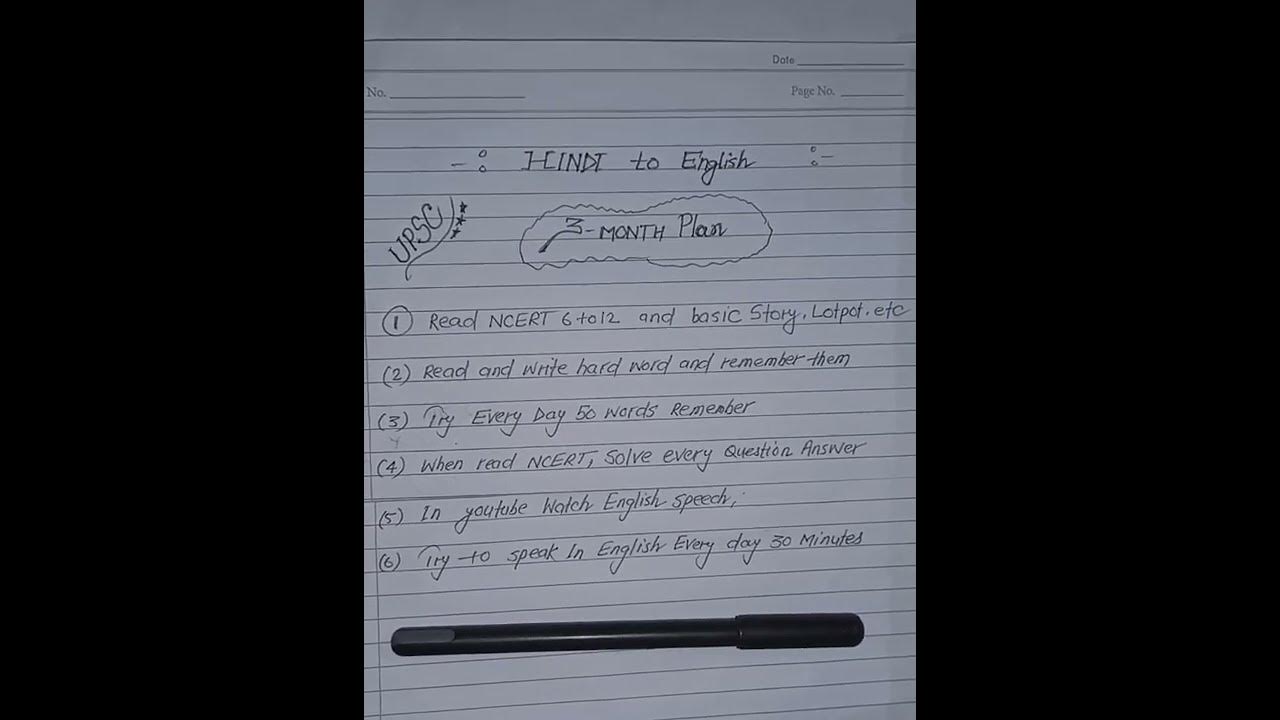 Date
No.
Page No.
-: HINDI to English :-
UPSC
3-MONTH Plan
(1) Read NCERT 6 to 12 and basic Story, Lotpot. etc
(2) Read and write hard word and remember them
(3) Try Every Day 50 words Remember
(4) When read NCERT, Solve every Question Answer
(5) In youtube Watch English speech,
(6) Try to speak In English Every day 30 Minutes